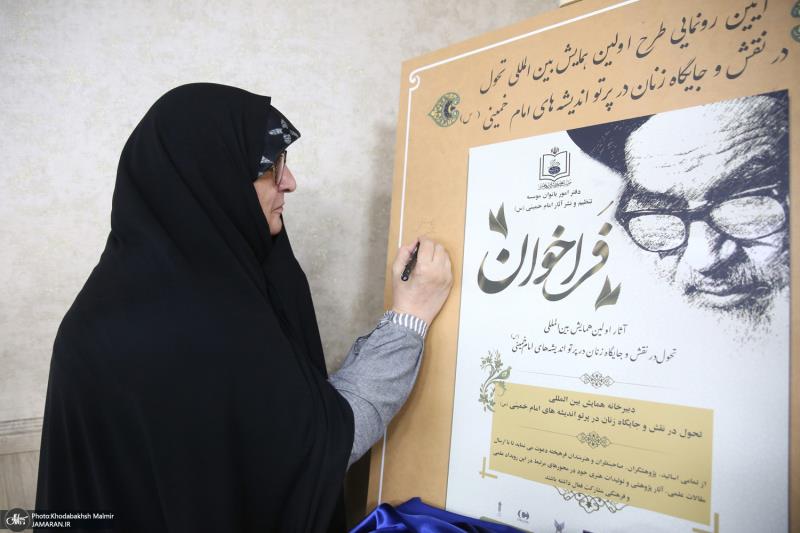 آیین رونمایی طرح اولین همایش بین المللی تحول
در نقش و جایگاه زنان در پرتو اندیشه های امام خمینی (س)
دفتر امور بانوان موسسه
تنظیم و نشر آثار امام خمینی (س)
فراخوان
آثار اولین همایش بین المللی
تحول در نقش و جایگاه زنان در پرتو اندیشه های امام خمینی (س)
دبیرخانه همایش بین المللی
تحول در نقش و جایگاه زنان در پرتو اندیشه های امام خمینی (س)
از تمامی اساتید، پژوهشگران، صاحبنظران و هنرمندان فرهیخته دعوت می نماید تا با ارسال
مقالات علمی، آثار پژوهشی و تولیدات هنری خود در محورهای مرتبط در این رویداد علمی
و فرهنگی مشارکت فعال داشته باشند
Photo:Khodabakhsh Malmir
JAMARAN.IR